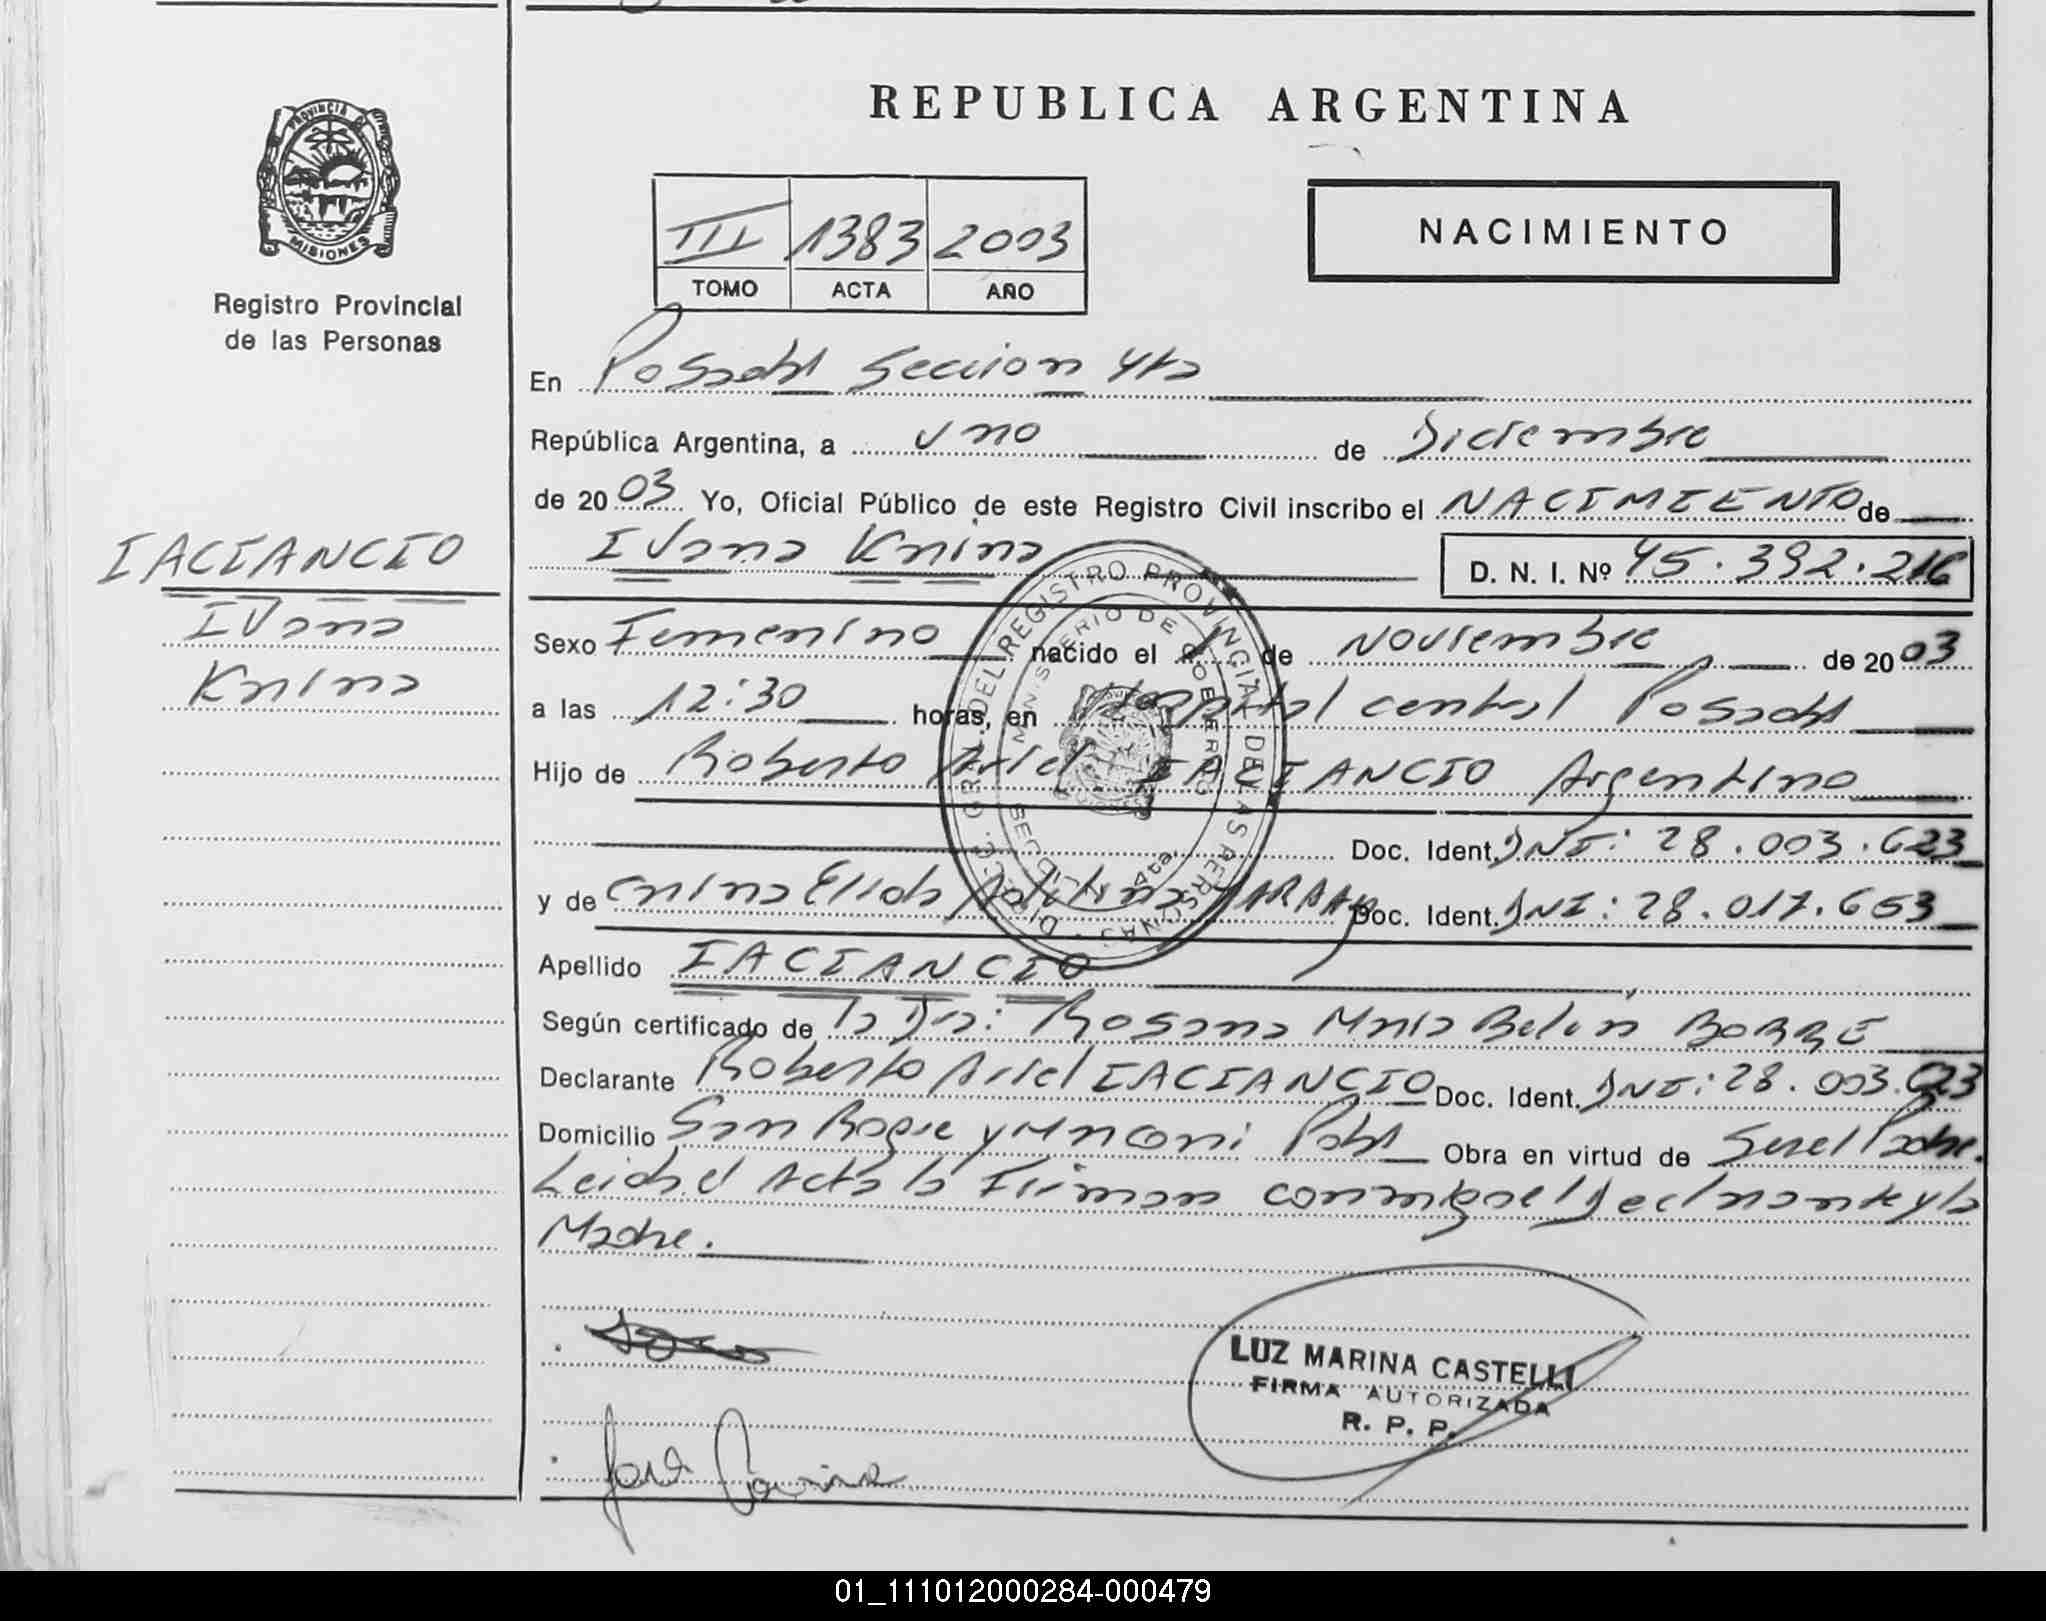 REPUBLICA ARGENTINA
PROVINCIA DE
MISIONES
Registro Provincial
de las Personas
III 1383 2003
TOMO ACTA AÑO
NACIMIENTO
En Posadas Seccion 4ta
República Argentina, a uno de Diciembre
de 2003 Yo, Oficial Público de este Registro Civil inscribo el NACIMIENTO de
IACIANCIO
Ivana
Karina
Ivana Karina
D. N. I. Nº 45.392.216
Sexo Femenino nacido el de Noviembre de 2003
a las 12:30 horas, en Hospital central Posadas
Hijo de Roberto Ariel IACIANCIO Argentino
Doc. Ident. DNI: 28.003.623
y de Doc. Ident. DNI: 28.017.653
Apellido IACIANCIO
Según certificado de la Dra: Rosana Maria Belen BORRE
Declarante Roberto Ariel IACIANCIO Doc. Ident. DNI: 28.003.623
Domicilio San Roque y Marconi Pdas Obra en virtud de Ser el Padre.
Leida el Acta la Firman conmigo el Declarante y la
Madre.
DIREC. GRAL. DEL REGISTRO PROVINCIAL DE LAS PERSONAS
MINISTERIO DE GOBIERNO
4ta.
LUZ MARINA CASTELLI
FIRMA AUTORIZADA
R. P. P.
01_111012000284-000479